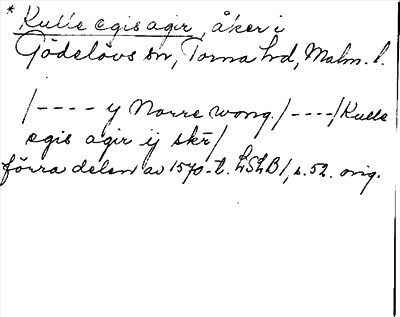 * Kulle egis agir, åker i
Gödelövs sn, Torna hd, Malm. l.
/---- y Norre wong. /----/ Kulle
egis agir ij skr̄ /
förra delen av 1570-t. LSLB 1, s. 52. orig.